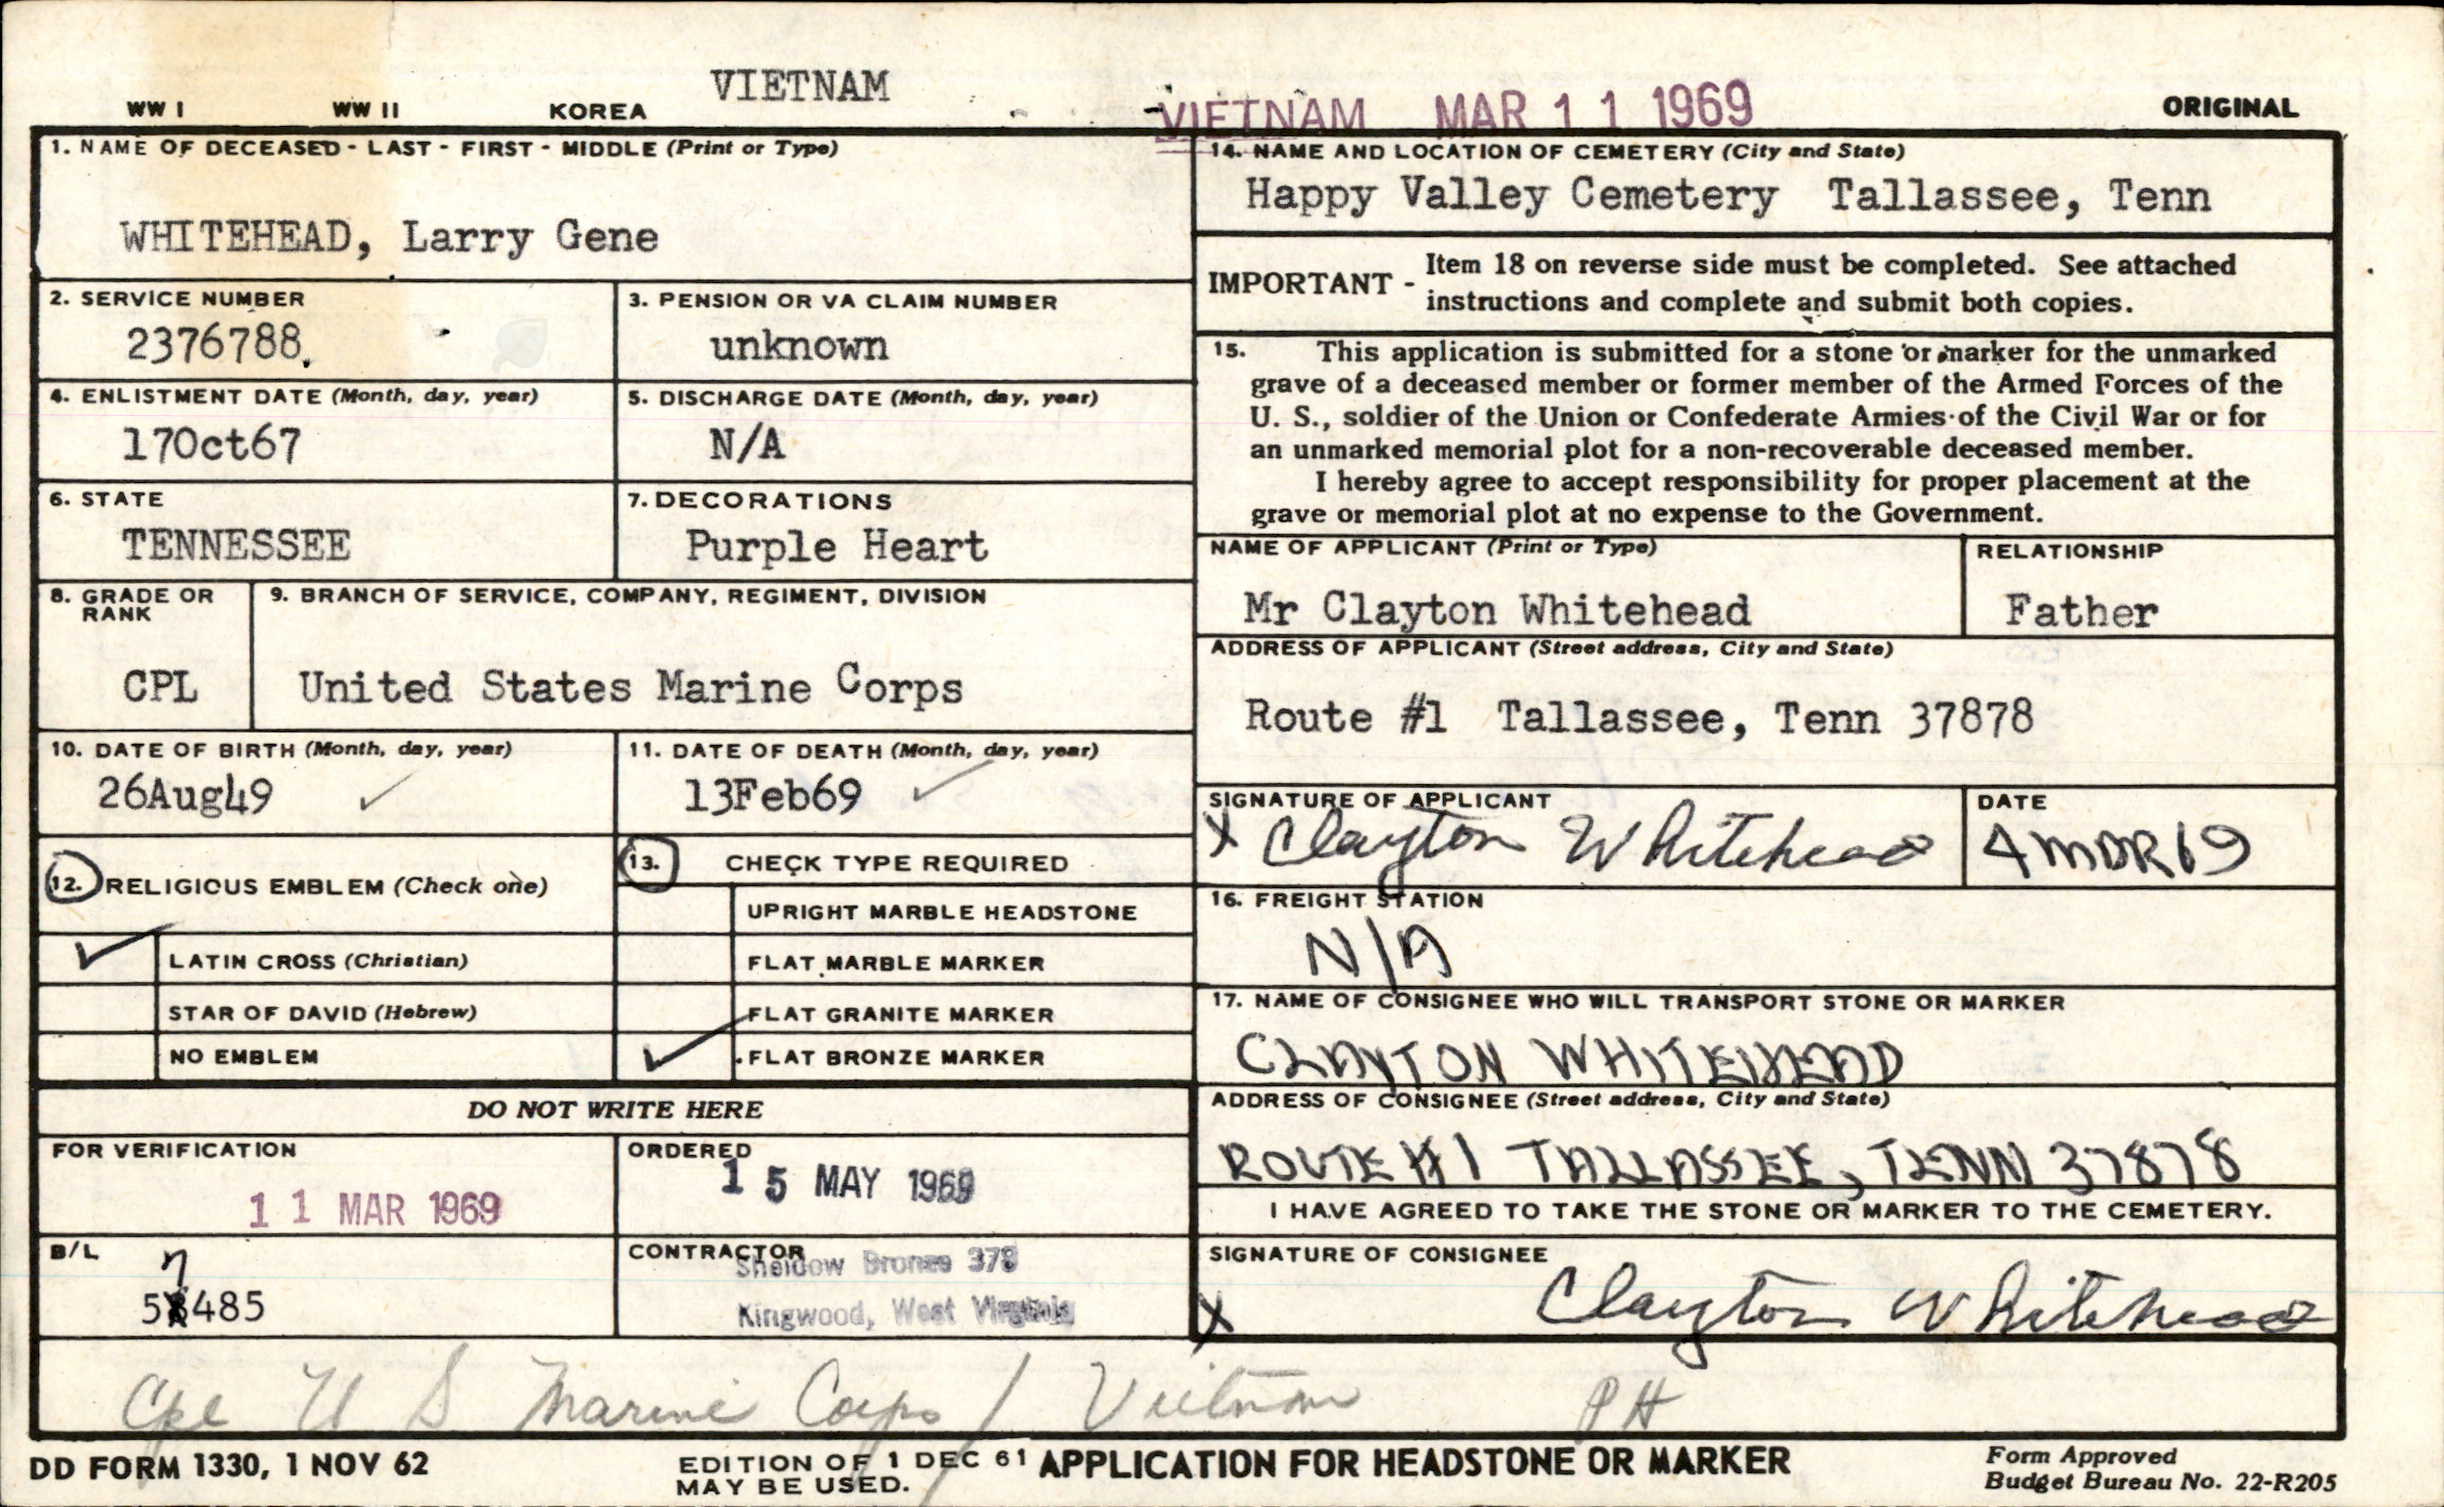 VIETNAM
WW I WW II KOREA VIETNAM MAR 11 1969 ORIGINAL
1. NAME OF DECEASED - LAST - FIRST - MIDDLE (Print or Type)
WHITEHEAD, Larry Gene
2. SERVICE NUMBER
2376788.
3. PENSION OR VA CLAIM NUMBER
unknown
4. ENLISTMENT DATE (Month, day, year)
17Oct67
5. DISCHARGE DATE (Month, day, year)
N/A
6. STATE
TENNESSEE
7. DECORATIONS
Purple Heart
8. GRADE OR
RANK
CPL
9. BRANCH OF SERVICE, COMPANY, REGIMENT, DIVISION
United States Marine Corps
10. DATE OF BIRTH (Month, day, year)
26Aug49
11. DATE OF DEATH (Month, day, year)
13Feb69
12. RELIGIOUS EMBLEM (Check one)
LATIN CROSS (Christian)
STAR OF DAVID (Hebrew)
NO EMBLEM
13. CHECK TYPE REQUIRED
UPRIGHT MARBLE HEADSTONE
FLAT MARBLE MARKER
FLAT GRANITE MARKER
FLAT BRONZE MARKER
DO NOT WRITE HERE
FOR VERIFICATION
11 MAR 1969
ORDERED
15 MAY 1969
B/L
7
58485
CONTRACTOR
Sheidow Bronze 378
Kingwood, West Virginia
14. NAME AND LOCATION OF CEMETERY (City and State)
Happy Valley Cemetery Tallassee, Tenn
IMPORTANT - Item 18 on reverse side must be completed. See attached
instructions and complete and submit both copies.
15. This application is submitted for a stone or marker for the unmarked
grave of a deceased member or former member of the Armed Forces of the
U. S., soldier of the Union or Confederate Armies of the Civil War or for
an unmarked memorial plot for a non-recoverable deceased member.
I hereby agree to accept responsibility for proper placement at the
grave or memorial plot at no expense to the Government.
NAME OF APPLICANT (Print or Type)
Mr Clayton Whitehead
RELATIONSHIP
Father
ADDRESS OF APPLICANT (Street address, City and State)
Route #1 Tallassee, Tenn 37878
SIGNATURE OF APPLICANT
X Clayton Whitehead
DATE
4 MAR 69
16. FREIGHT STATION
N/A
17. NAME OF CONSIGNEE WHO WILL TRANSPORT STONE OR MARKER
CLAYTON WHITEHEAD
ADDRESS OF CONSIGNEE (Street address, City and State)
ROUTE #1 TALLASSEE, TENN 37878
I HAVE AGREED TO TAKE THE STONE OR MARKER TO THE CEMETERY.
SIGNATURE OF CONSIGNEE
X Clayton Whitehead
Cpl U S Marine Corps / Vietnam PH
DD FORM 1330, 1 NOV 62
EDITION OF 1 DEC 61
MAY BE USED.
APPLICATION FOR HEADSTONE OR MARKER
Form Approved
Budget Bureau No. 22-R205